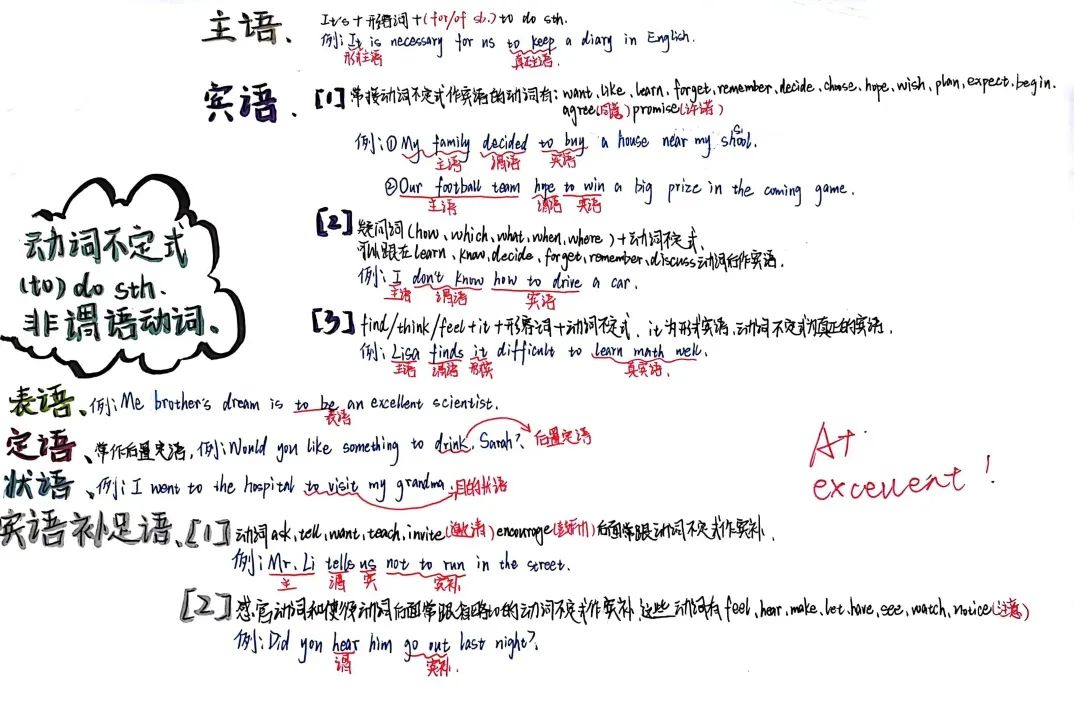 动词不定式
(to) do sth.
非谓语动词。
主语、
It's + 形容词 + (for/of sb.) to do sth.
例: It is necessary for us to keep a diary in English.
形式主语
真正主语.
宾语、
[1] 常接动词不定式作宾语的动词有: want、like、learn、forget、remember、decide、choose、hope、wish、plan、expect、begin.
agree(同意) promise(许诺)
例: ① My family decided to buy a house near my shool.
主语 谓语 宾语
② Our football team hope to win a big prize in the coming game.
主语 谓语 宾语
[2] 疑问词 (how、which、what、when、where) + 动词不定式、
可以跟在learn、know、decide、forget、remember、discuss动词后作宾语.
例: I don't know how to drive a car.
主语 谓语 宾语
[3] find/think/feel + it + 形容词 + 动词不定式. it为形式宾语,动词不定式为真正的宾语.
例: Lisa finds it difficult to learn math well.
主语 谓语 形宾 真宾语.
表语、例: Me brother's dream is to be an excellent scientist.
表语
定语、常作后置定语, 例: Would you like something to drink, Sarah? 后置定语
状语、例: I went to the hospital to visit my grandma. 目的状语
宾语补足语、[1] 动词ask、tell、want、teach、invite(邀请) encourage(鼓励) 后面常跟动词不定式作宾补.
例: Mr. Li tells us not to run in the street.
主 谓 宾 宾补
[2] 感官动词和使役动词后面常跟省略to的动词不定式作宾补、这些动词有feel、hear、make、let、have、see、watch、notice(注意)
例: Did you hear him go out last night?
谓 宾补.
A+
excellent!